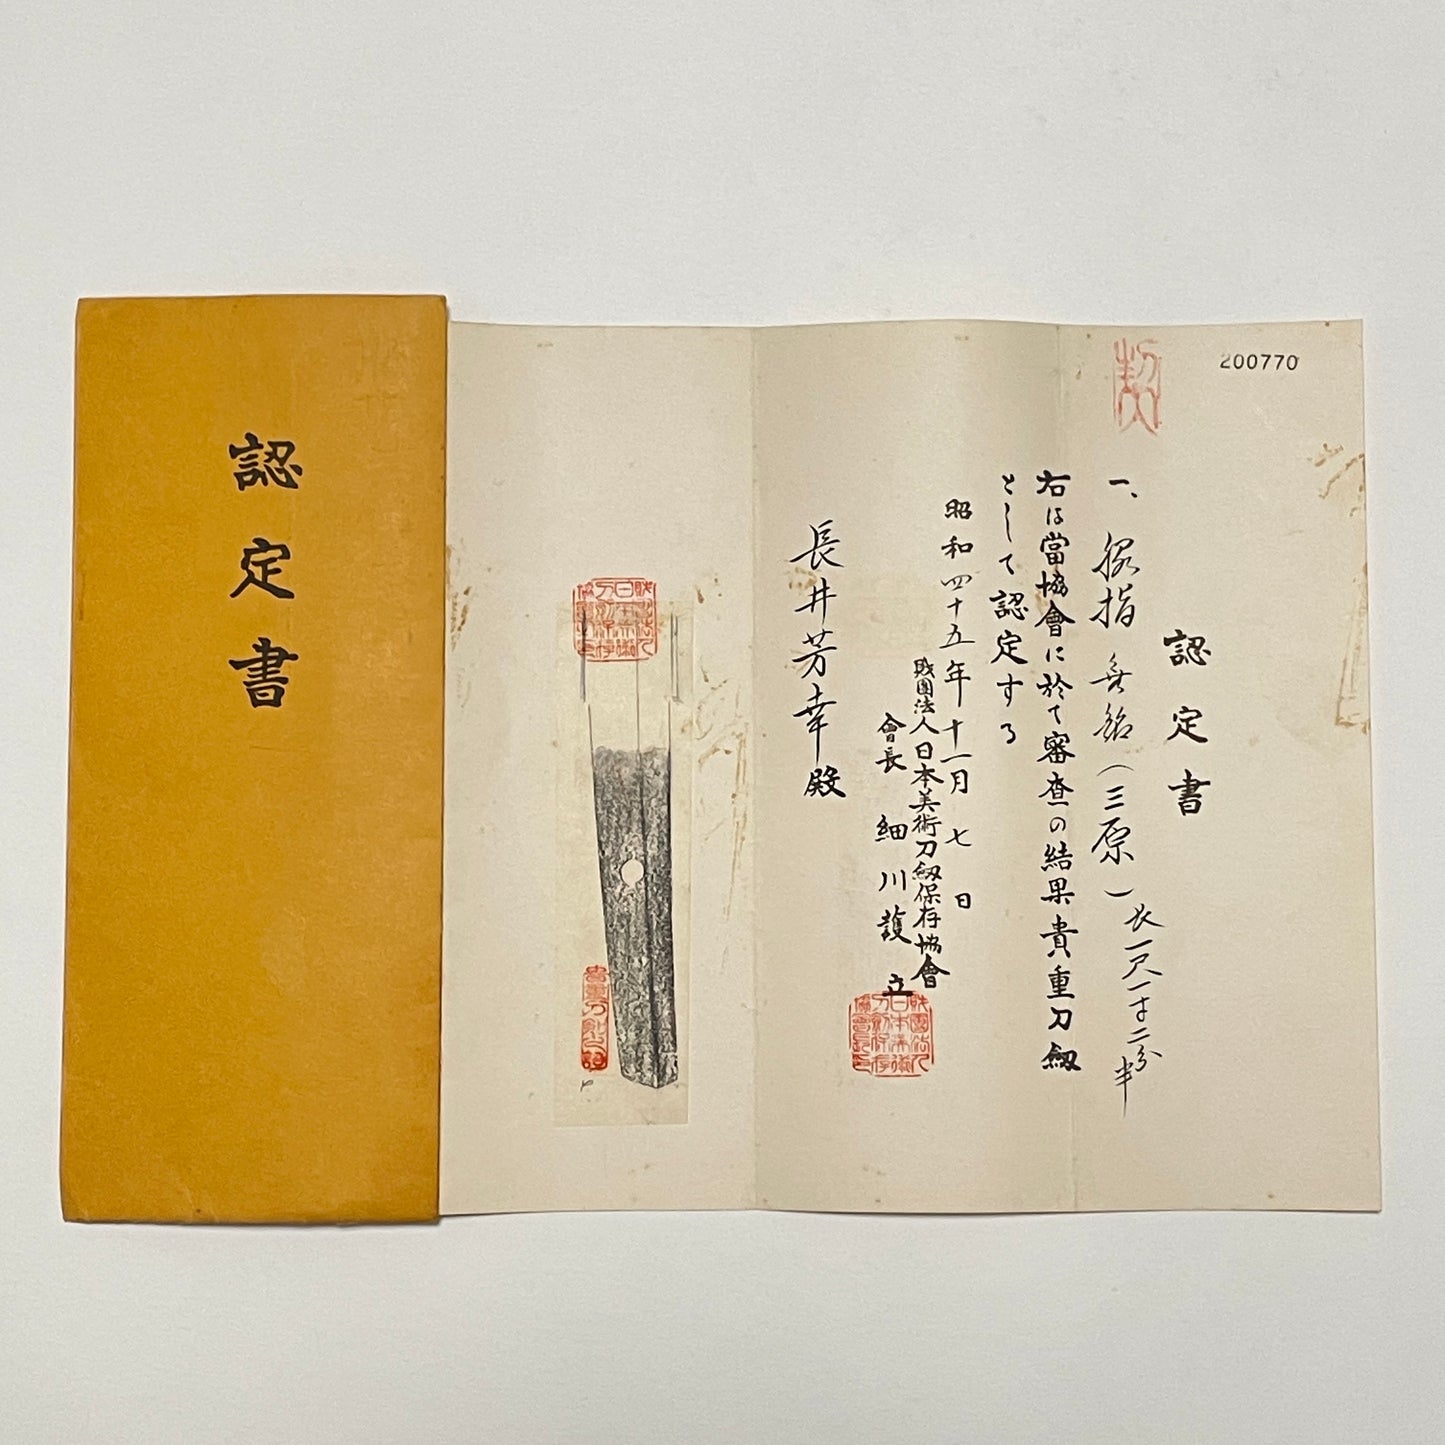 認定書
200770
認定書
一、脇指 無銘(三原)長一尺一寸二分半
右は當協會に於て審査の結果貴重刀劔
として認定する
昭和四十五年十一月七日
財團法人日本美術刀劔保存協會
會長 細川護立
長井芳幸殿